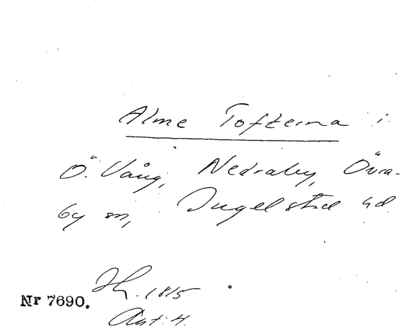 Alme Tofterna i
Ö. Vång, Nedraby, Övra-
by sn, Ingelstad hd.
1815
Nr 7690.
Akt 4.